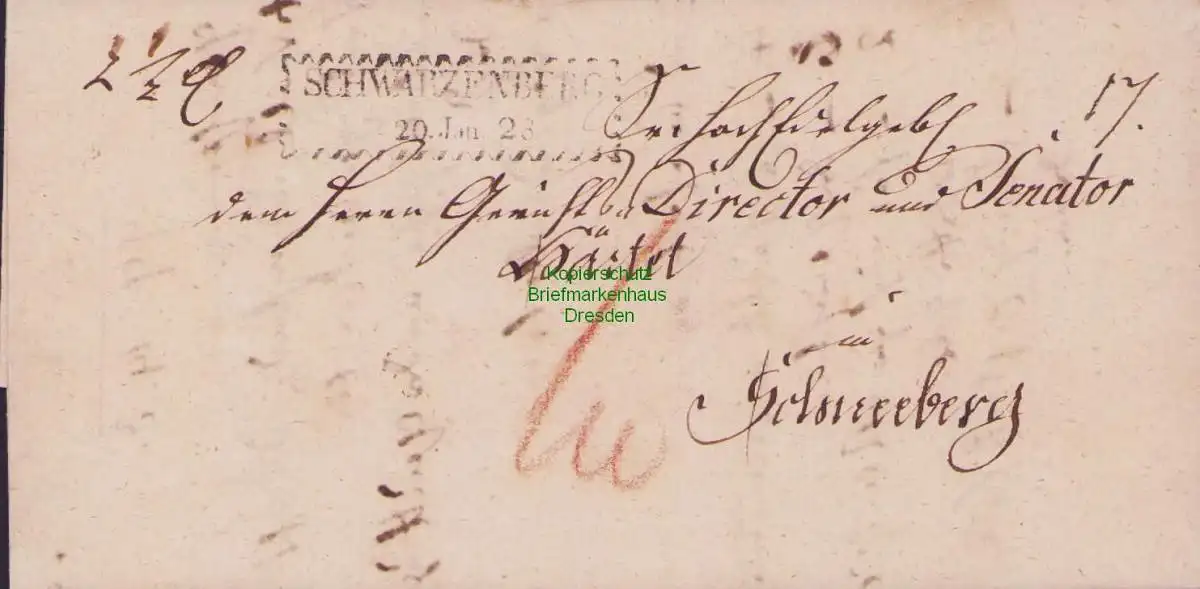 2 1/2
SCHWARZENBERG
20. Jan 28
Sr. Hochedelgeb. 17.
dem Herrn Gerichts Director und Senator
Kopierschutz
Briefmarkenhaus
Dresden
in
Schneeberg